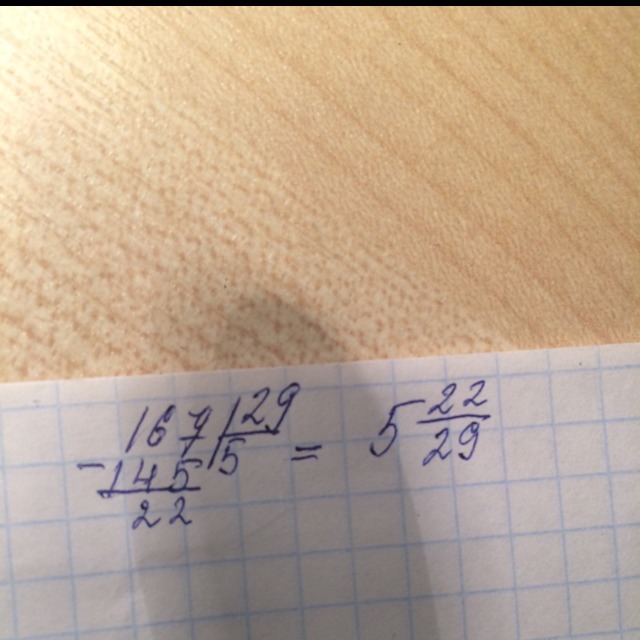 167 | 29 = 5 22/29
- 145 | 5
22